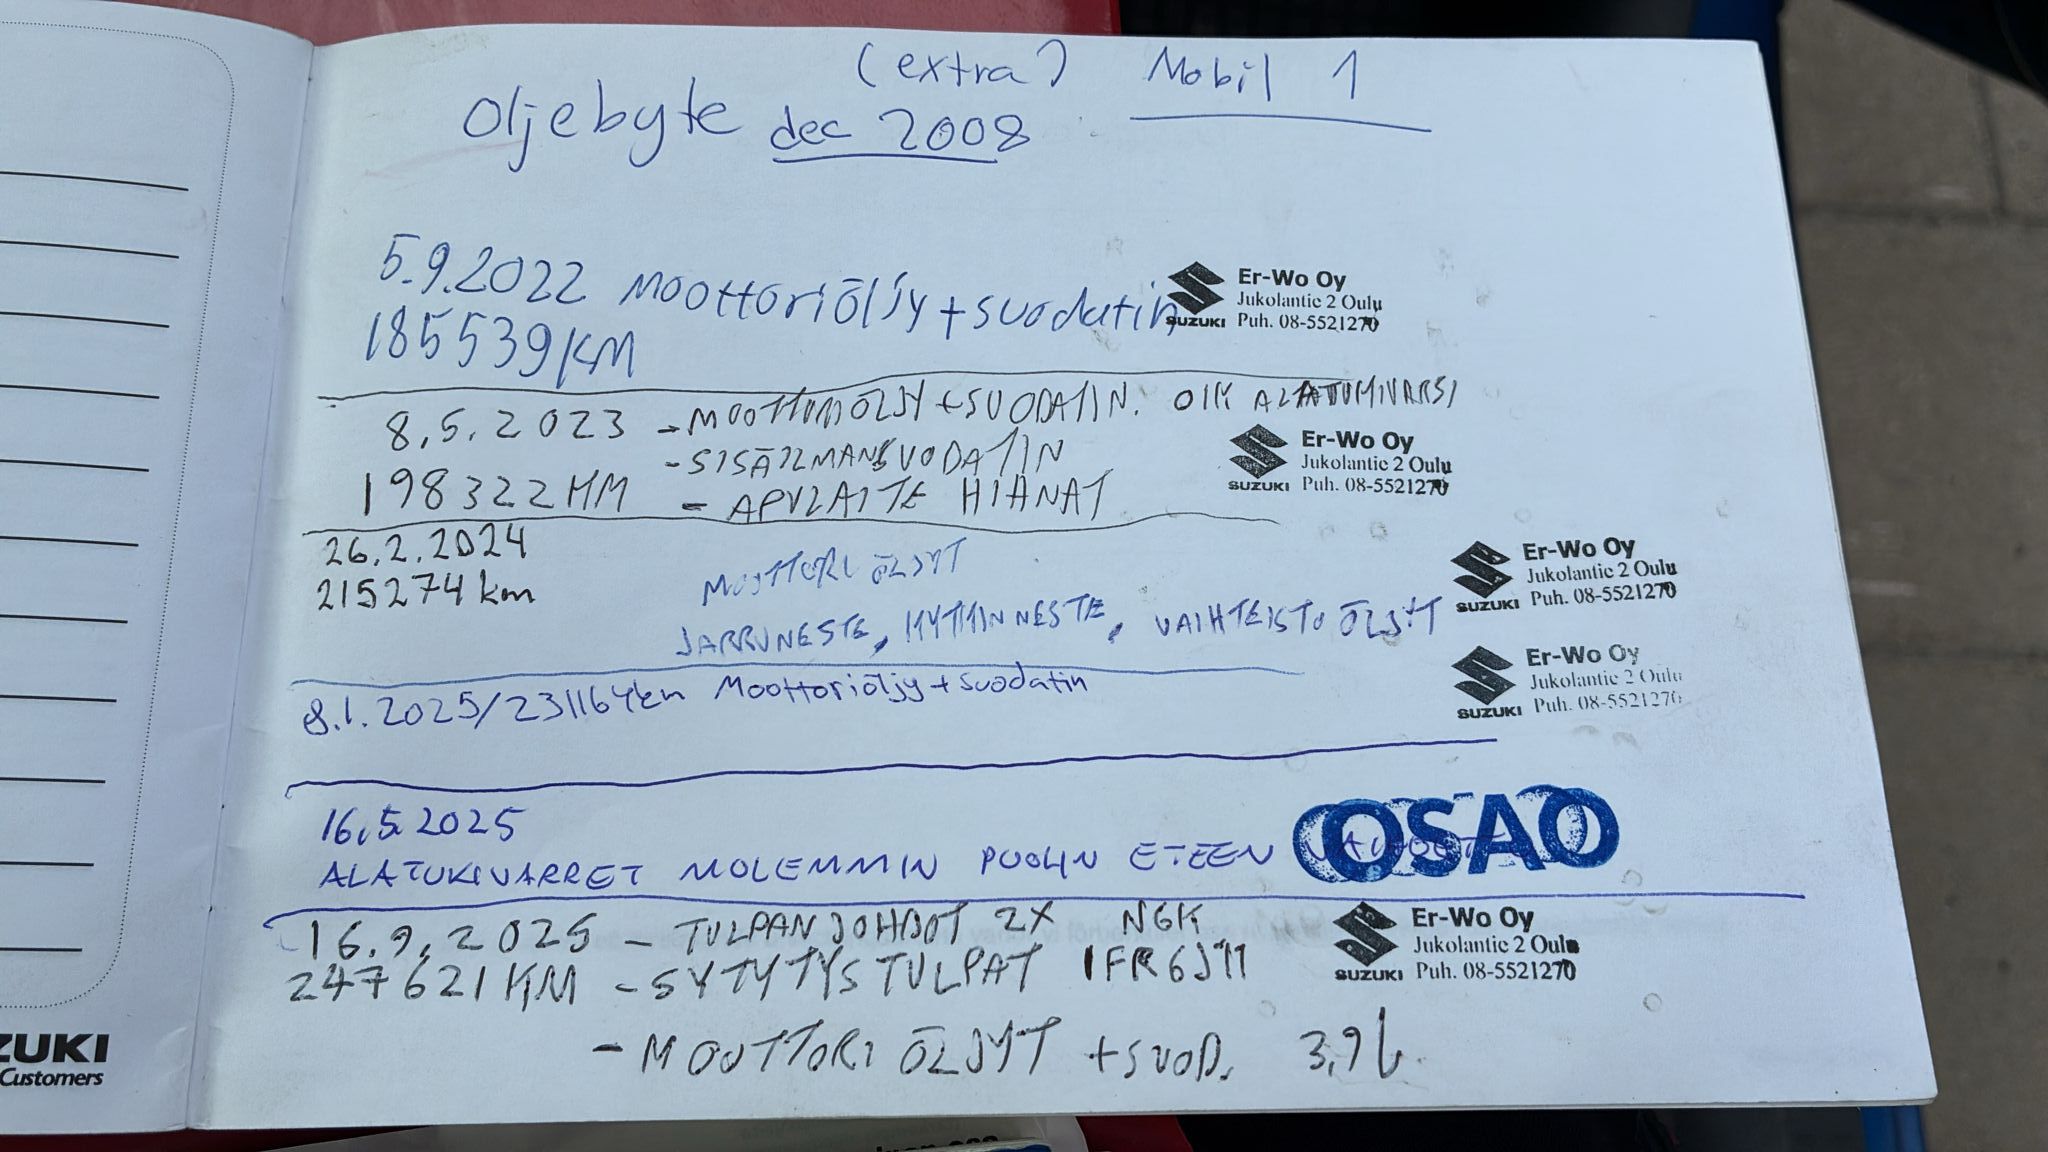 (extra) Mobil 1
Oljebyte dec 2008
5.9.2022 Moottoriöljy + suodatin
185539 KM
SUZUKI
Er-Wo Oy
Jukolantie 2 Oulu
Puh. 08-5521270
8.5.2023 - MOOTTORIÖLJY + SUODATIN. OIK ALATUKIVARSI
- SISÄILMANSUODATIN
198322 KM - APULAITE HIHNAT
SUZUKI
Er-Wo Oy
Jukolantie 2 Oulu
Puh. 08-5521270
26.2.2024
215274 km
MOOTTORI ÖLJYT
JARRUNESTE, KYTKINNESTE, VAIHTEISTO ÖLJYT
SUZUKI
Er-Wo Oy
Jukolantie 2 Oulu
Puh. 08-5521270
8.1.2025/231164km Moottoriöljy + Suodatin
SUZUKI
Er-Wo Oy
Jukolantie 2 Oulu
Puh. 08-5521270
16.5.2025
ALATUKIVARRET MOLEMMIN PUOLIN ETEEN
OSAO
16.9.2025 - TULPANJOHDOT 2X NGK
247621 KM - SYTYTYSTULPAT IFR6J11
- MOOTTORI ÖLJYT + SUOD. 3,9 L
SUZUKI
Er-Wo Oy
Jukolantie 2 Oulu
Puh. 08-5521270
ZUKI
Customers